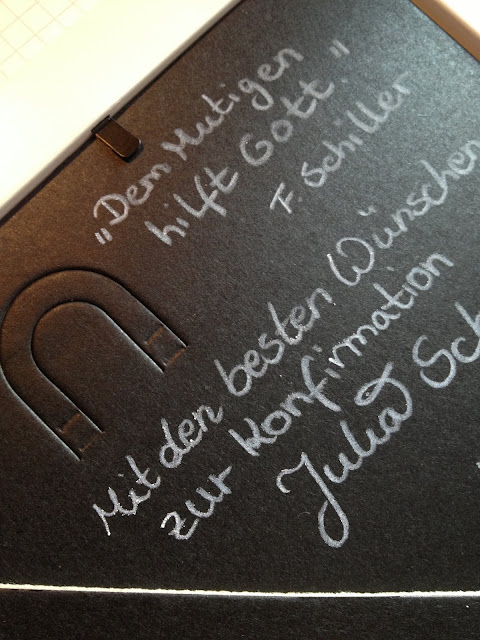 "Dem Mutigen
hilft Gott."
F. Schiller
Mit den besten Wünschen
zur Konfirmation
Julia Sch